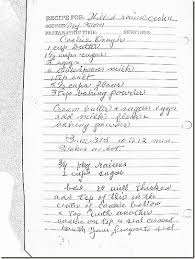 RECIPE FOR: Filled raisin cookies
My Mom
PREPARATION TIME SERVINGS
Cookie Dough
1 cup butter
1½ cups sugar
2 eggs
6 tablespoons milk
1 tsp salt
cups flour
3 tsp baking powder
Cream butter & sugar & eggs
add milk, flour &
baking powder
Bake 375 10 to 12 min.
Makes
¾ pkg raisins
1 cup sugar
boil it will thicken
add tsp of this in the
center of cookie bottom
& top with another
cookie on top & seal around
with your fingers to seal